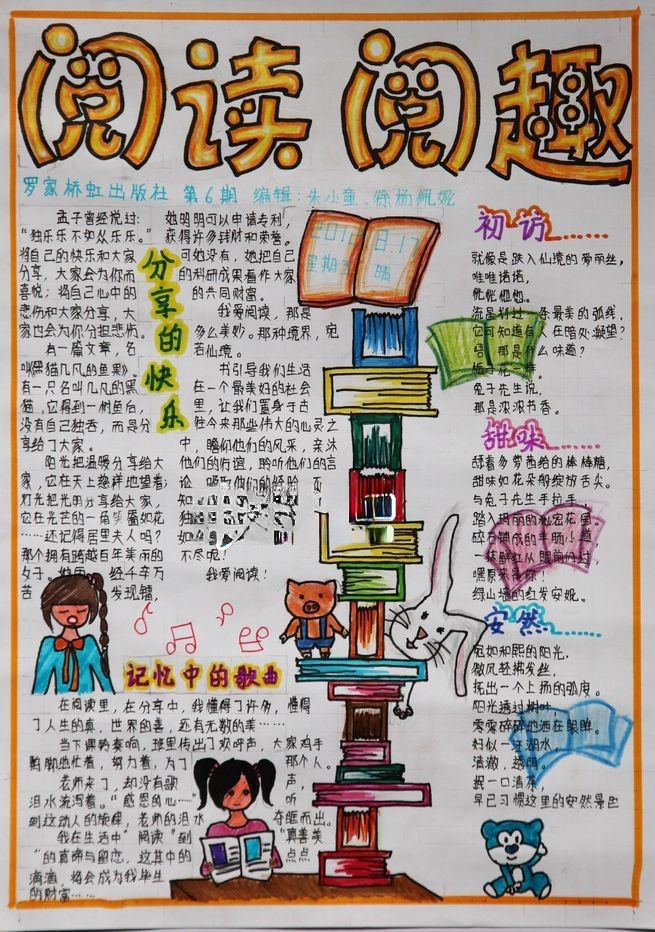 阅读阅趣
罗家桥虹出版社 第6期 编辑:朱小童、徐杨佩妮
分享的快乐
孟子曾经说过:
“独乐乐不如众乐乐。”
将自己的快乐和大家
分享,大家会为你而
喜悦;将自己心中的
悲伤和大家分享,大
家也会为你分担悲伤。
有一篇文章,名
叫《黑猫几凡的鱼果》。
有一只名叫几凡的黑
猫,它得到一树鱼后,
没有自己独吞,而是分
享给了大家。
阳光把温暖分享给大
家,它在天上笑眯地望着;
灯光把光明分享给大家,
它在光芒的一角笑靥如花
……还记得居里夫人吗?
那个拥有跨越百年美丽的
女子。她用 经千辛万
苦 发现镭,
她明明可以申请专利,
获得许多钱财和荣誉。
可她没有,她把自己
的科研成果看作大家
的共同财富。
我爱阅读,那是
多么美妙。那种境界,宛
若仙境。
书引导我们生活
在一个最美好的社会
里,让我们置身于古
往今来那些伟大的心灵之
中,瞻仰他们的风采,亲沐
他们的行谊,聆听他们的言
论
知
独
如
不尽呢!
我爱阅读!
8.17
星期五 晴
初访……
就像是跌入仙境的爱丽丝,
唯唯诺诺,
恍恍惚惚。
流星划过一条最美的弧线,
它可知道有人在暗处凝望?
唔,那是什么味道?
栀子花一样。
兔子先生说,
那是浓浓书香。
甜味……
舔着多萝西给的棒棒糖,
甜味如花朵般绽放舌尖。
与兔子先生手拉手,
踏入玛丽的秘密花园。
碎石铺成的羊肠小道,
一抹鲜红从眼前闪过,
嘿原来是你!
绿山墙的红发安妮。
安然……
宛如和熙的阳光,
微风轻拂发丝,
抚出一个上扬的弧度。
阳光透过树叶,
零零碎碎地洒在眼眸。
好似一汪湖水,
清澈,透明。
抿一口清茶,
早已习惯这里的安然
记忆中的歌曲
在阅读里,在分享中,我懂得了许多,懂得
了人生的真,世界的善,还有无数的美……
当下课铃奏响,班里传出了欢呼声,大家鸡手
鸭脚地忙着,努力着,为了 那个人。
老师来了,却没有歌 声,
泪水流泻着。“感恩的心……” 听
到这动人的旋律,老师的泪水 夺眶而出。
我在生活中“阅读”到 “真善美
”的真谛与留恋,这其中的 点点
滴滴,将会成为我毕生
的财富……